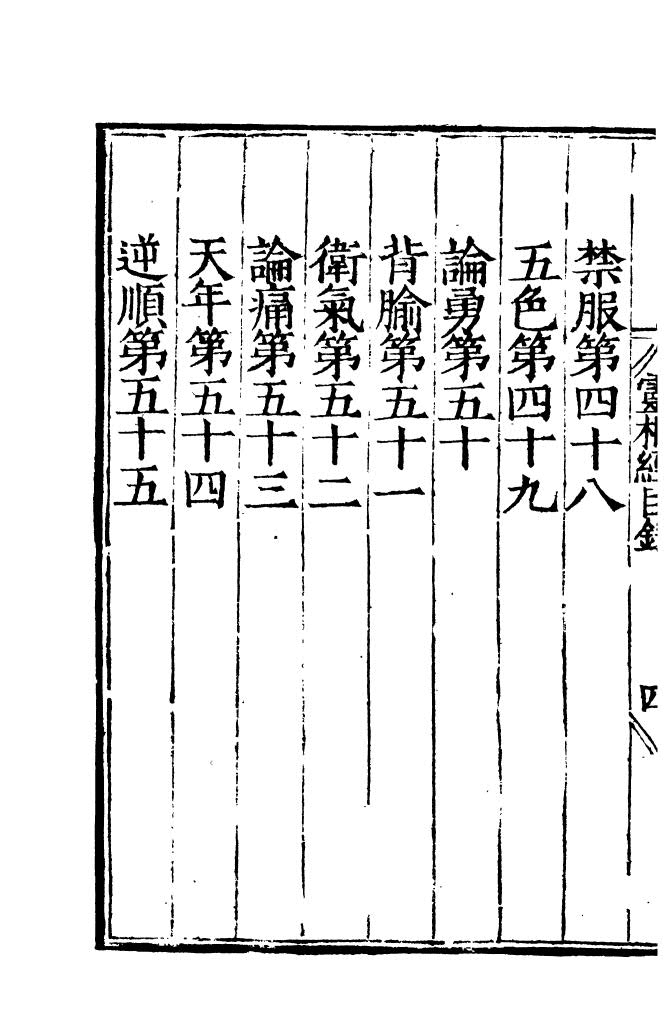 靈樞經目錄
四
禁服第四十八
五色第四十九
論勇第五十
背腧第五十一
衛氣第五十二
論痛第五十三
天年第五十四
逆順第五十五